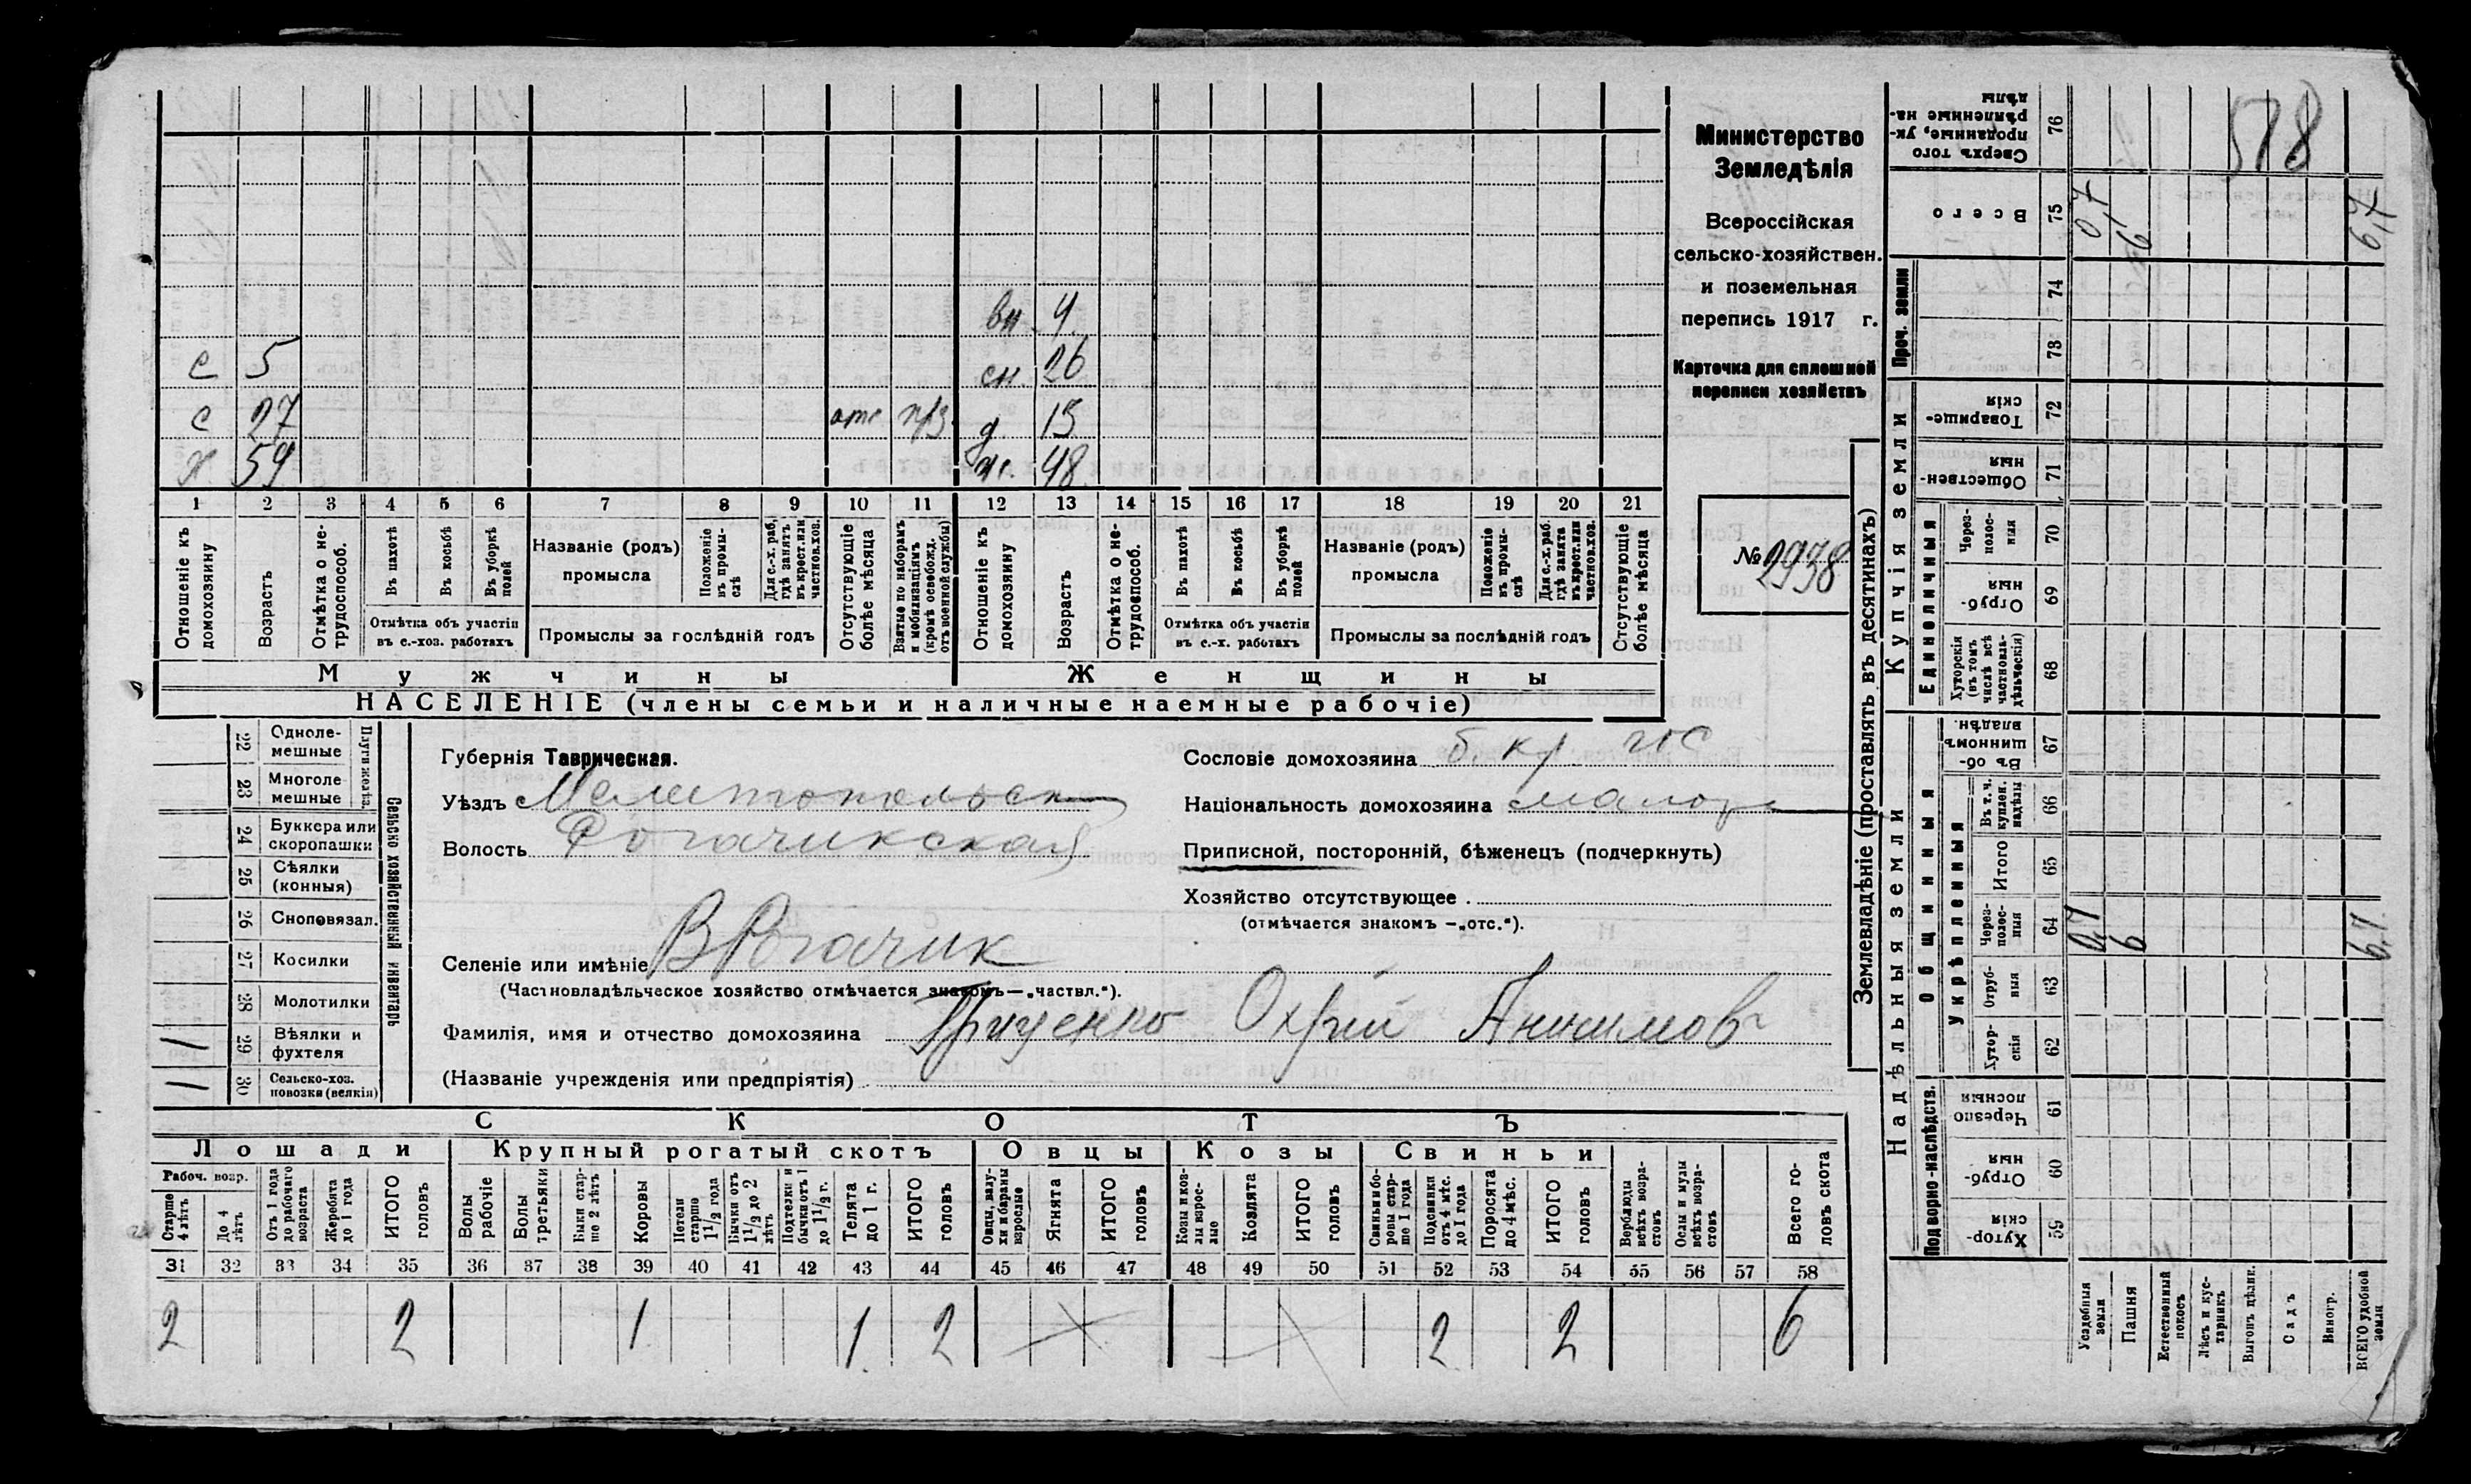 Министерство
Земледѣлія
Всероссійская
сельско-хозяйствен.
и поземельная
перепись 1917 г.
Карточка для сплошной
переписи хозяйствъ
№ 2938
вн. 4
с 5 сн. 26
с 27 отс п/з. д. 15
х 59 ж. 48
1 2 3 4 5 6 7 8 9 10 11 12 13 14 15 16 17 18 19 20 21
Отношеніе къ домохозяину
Возрастъ
Отмѣтка о не-трудоспособ.
Въ пахотѣ
Въ косьбѣ
Въ уборкѣ полей
Отмѣтка объ участіи
въ с.-хоз. работахъ
Названіе (родъ)
промысла
Положеніе въ промы-слѣ
Для с.-х. раб. гдѣ занятъ въ крест. или частнов. хоз.
Промыслы за послѣдній годъ
Отсутствующіе болѣе мѣсяца
Взятые по наборамъ и мобилизаціямъ (кромѣ освобожд. отъ военной службы)
Отношеніе къ домохозяину
Возрастъ
Отмѣтка о не-трудоспособ.
Въ пахотѣ
Въ косьбѣ
Въ уборкѣ полей
Отмѣтка объ участіи
въ с.-х. работахъ
Названіе (родъ)
промысла
Положеніе въ промы-слѣ
Для с.-х. раб. гдѣ занята въ крест. или частнов. хоз.
Промыслы за послѣдній годъ
Отсутствующіе болѣе мѣсяца
Мужчины Женщины
НАСЕЛЕНІЕ (члены семьи и наличные наемные рабочіе)
22 Однолемешные
23 Многолемешные
Плуги желѣз.
24 Буккера или скоропашки
25 Сѣялки (конныя)
26 Сноповязал.
27 Косилки
28 Молотилки
1 29 Вѣялки и фухтеля
1 30 Сельско-хоз. повозки (всякія)
Сельско хозяйственный инвентарь
Губернія Таврическая.
Уѣздъ Мелитопольск
Волость Рогачикская
Селеніе или имѣніе В Рогачик
(Частновладѣльческое хозяйство отмѣчается знакомъ—„частвл.“).
Сословіе домохозяина б. кр.
Національность домохозяина малор
Приписной, посторонній, бѣженецъ (подчеркнуть)
Хозяйство отсутствующее .
(отмѣчается знакомъ —„отс.“).
Фамилія, имя и отчество домохозяина Гриценко Охрій Анисимов
(Названіе учрежденія или предпріятія)
СКОТЪ
Лошади Крупный рогатый скотъ Овцы Козы Свиньи
Рабоч. возр.
Старше 4 лѣтъ
До 4 лѣтъ
Отъ 1 года до рабочаго возраста
Жеребята до 1 года
ИТОГО головъ
Волы рабочіе
Волы третьяки
Быки старше 2 лѣтъ
Коровы
Нетели старше 1 1/2 года
Бычки отъ 1 1/2 до 2 лѣтъ
Подтелки и бычки отъ 1 до 1 1/2 г.
Телята до 1 г.
ИТОГО головъ
Овцы, валухи и бараны взрослые
Ягнята
ИТОГО головъ
Козы и козлы взрослые
Козлята
ИТОГО головъ
Свиньи и боровы старше 1 года
Подсвинки отъ 4 мѣс. до 1 года
Поросята до 4 мѣс.
ИТОГО головъ
Верблюды всѣхъ возрастовъ
Ослы и мулы всѣхъ возрастовъ
Всего головъ скота
31 32 33 34 35 36 37 38 39 40 41 42 43 44 45 46 47 48 49 50 51 52 53 54 55 56 57 58
2 2 1 1 2 2 2 6
Землевладѣніе (проставлять въ десятинахъ)
Надѣльныя земли
Купчія земли
Проч. земли
Подворно-наслѣдств.
Общинныя
Укрѣпленныя
Единоличныя
Хуторскія 59
Отрубныя 60
Черезполосныя 61
Хуторскія 62
Отрубныя 63
Черезполосныя 64
Итого 65
Въ т. ч. куплен. надѣлы 66
Въ общинномъ владѣн. 67
Хуторскія (въ томъ числѣ всѣ частновладѣльческія) 68
Отрубныя 69
Черезполосныя 70
Общественныя 71
Товарищескія 72
73
74
Всего 75
Сверхъ того проданные, укрѣпленные надѣлы 76
Усадебныя земли 0,7 0,7
Пашня 6 6
Естественный покосъ
Лѣсъ и кустарникъ
Выгонъ цѣлик.
Садъ
Виногр.
ВСЕГО удобной земли 6,7 6,7
518